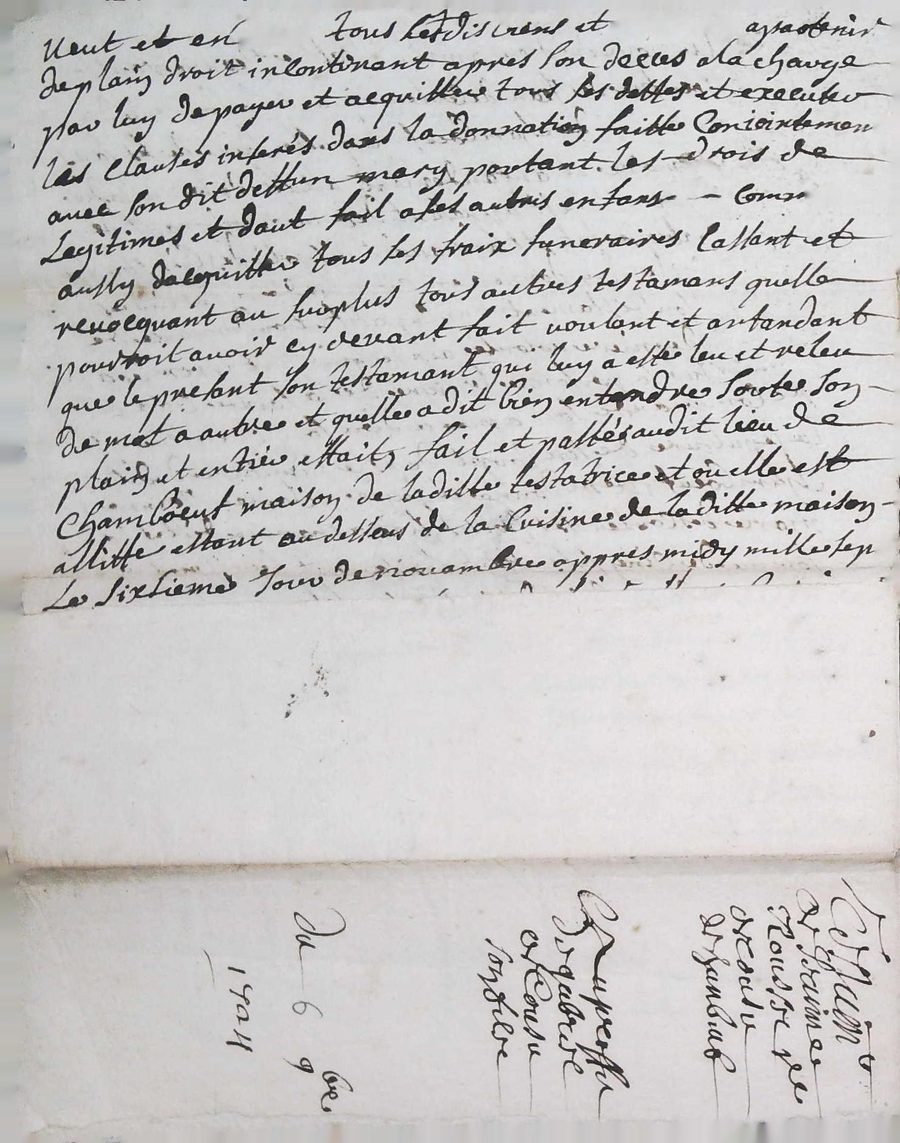 veut et en tous ses dis biens et apartenir
de plain droit incontinant apres son deces a la charge
par luy de payer et acquitter tous ses dettes et executer
les clauses inserés dans la donnation faitte Conjointemen
avec son dit deffun mary portant les drois de
Legitimes et daut fait a ses autres enfans - comm
aussy dacquitter tous ses fraix funeraires Cassant et
revocquant au surplus tous autres testamans quelle
pourroit avoir cy devant fait voulant et antandant
que le presant son testamant qui luy a esté leu et releu
de mot a autre et quelle a dit bien entendre sorte son
plain et entier effait, fait et passés audit lieu de
Chambœuf maison de laditte testatrice et ou elle est
allitte estant au dessus de la Cuisine de laditte maison
Le sixsieme Jour de novambre appres midy mille sep
Testam
de Jeanne
Rousse
de Janbeuf
son filz
Du 6 9bre
1704